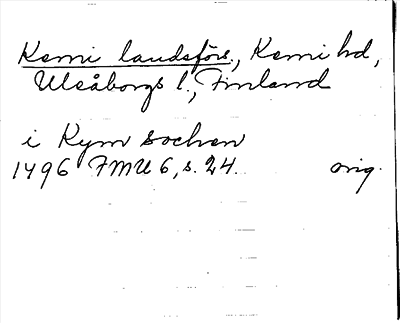 Kemi landsförs., Kemi hd,
Uleåborgs l., Finland
i Kym sochen
1496 FMU 6, s. 24. orig.